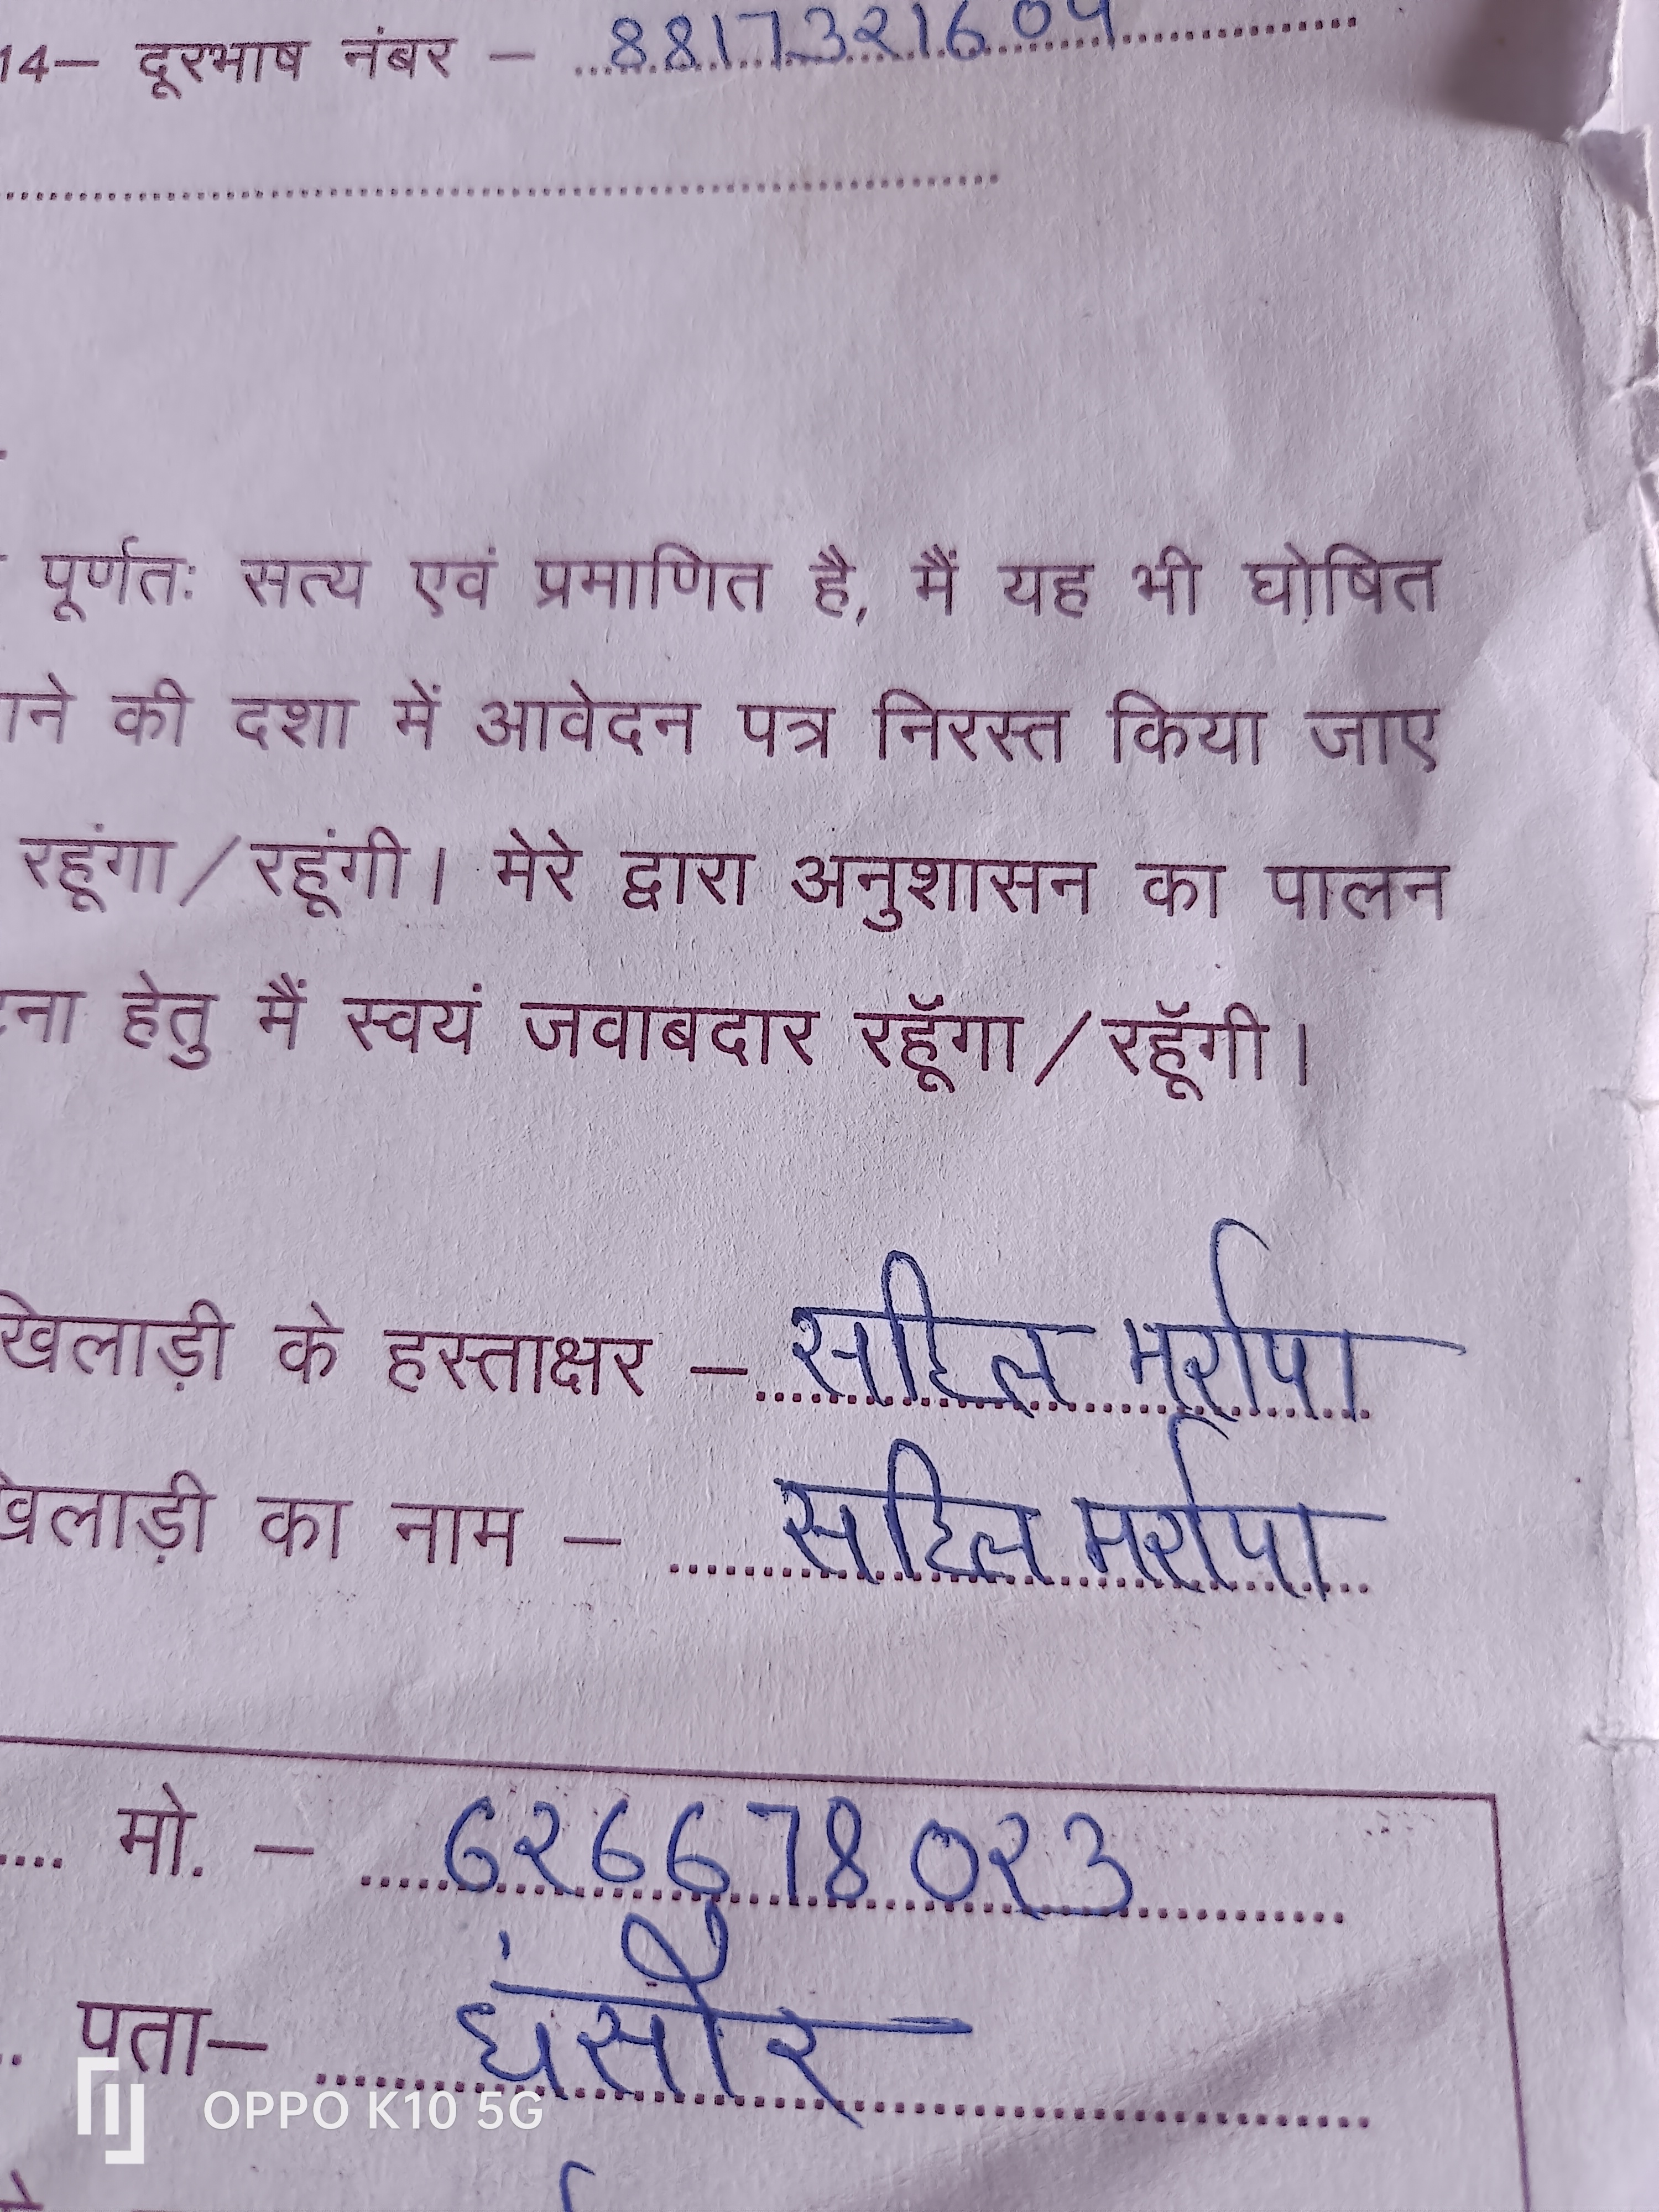 14– दूरभाष नंबर – 8817321604
पूर्णतः सत्य एवं प्रमाणित है, मैं यह भी घोषित
की दशा में आवेदन पत्र निरस्त किया जाए
रहूंगा/रहूंगी। मेरे द्वारा अनुशासन का पालन
हेतु मैं स्वयं जवाबदार रहूॅगा/रहूॅगी।
खिलाड़ी के हस्ताक्षर – सहिल मर्रापा
खिलाड़ी का नाम – सहिल मर्रापा
मो. – 626678023
पता– घंसौर
OPPO K10 5G